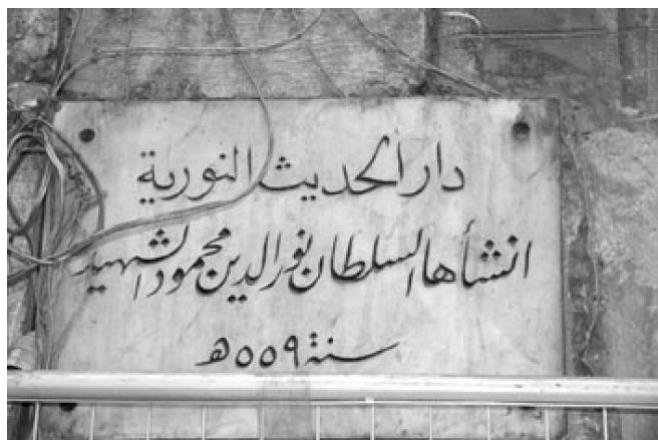 دار الحديث النورية
انشأها السلطان نور الدين محمود الشهيد
سنة ٥٥٩ هـ